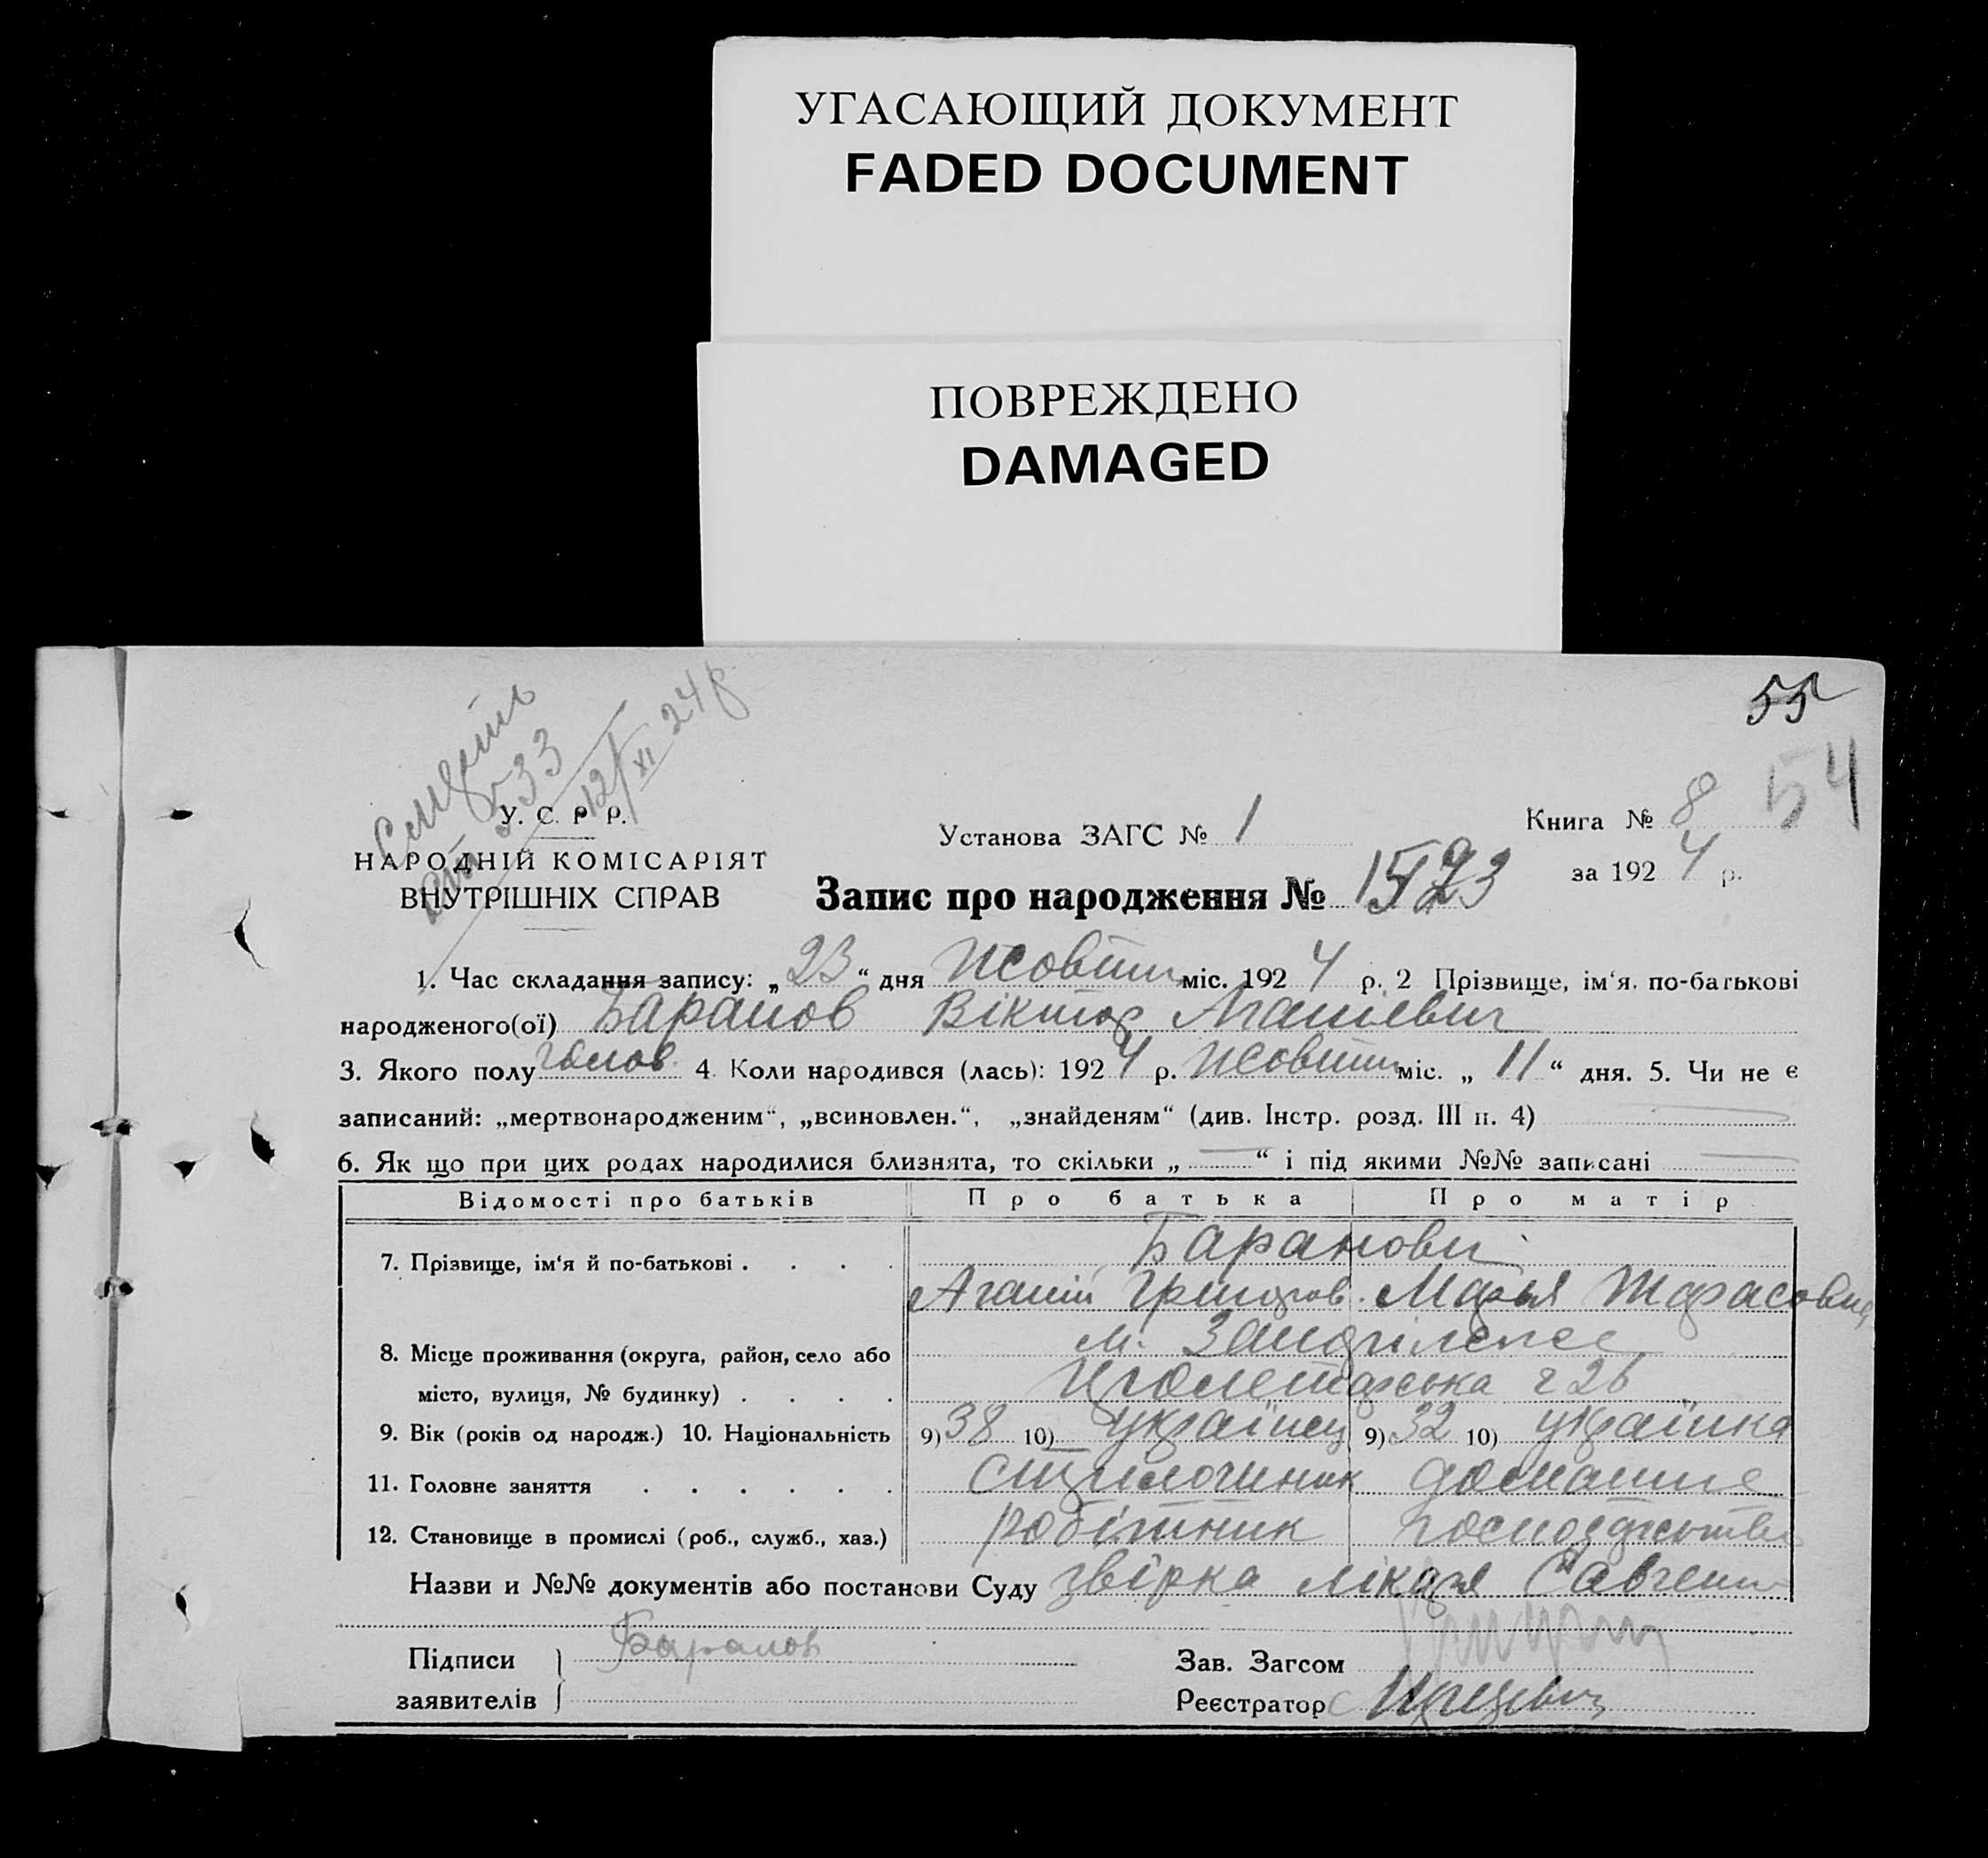 УГАСАЮЩИЙ ДОКУМЕНТ
FADED DOCUMENT
ПОВРЕЖДЕНО
DAMAGED
55
54
Смерть
533
12/XI 24 р.
У. С. Р Р.
НАРОДНІЙ КОМІСАРІЯТ
ВНУТРІШНІХ СПРАВ
Установа ЗАГС № 1
Книга № 8
за 1924 р.
Запис про народження № 1523
1. Час складання запису: „23“ дня Жовтня міс. 1924 р. 2 Прізвище, ім'я. по-батькові
народженого(ої) Баранов Віктор Агапієвич
3. Якого полу чолов. 4. Коли народився (лась): 1924 р. Жовтня міс. „11“ дня. 5. Чи не є
записаний: „мертвонародженим“, „всиновлен.“, „знайденям“ (див. Інстр. розд. III п. 4)
6. Як що при цих родах народилися близнята, то скільки „—“ і під якими №№ записані —
Відомості про батьків Про батька Про матір
7. Прізвище, ім'я й по-батькові . . . . Баранови
Агапій Григоров. Марья Тарасовна
8. Місце проживання (округа, район, село або м.
місто, вулиця, № будинку) . . . . Пролетарська 26
9. Вік (років од народж.) 10. Національність 9) 38 10) українец 9) 32 10) українка
11. Головне заняття . . . . . . домашне
12. Становище в промислі (роб., служб., хаз.) робітник господарство
Назви и №№ документів або постанови Суду звірка лікаря Савченко
Підписи Баранов
заявителів
Зав. Загсом
Реєстратор